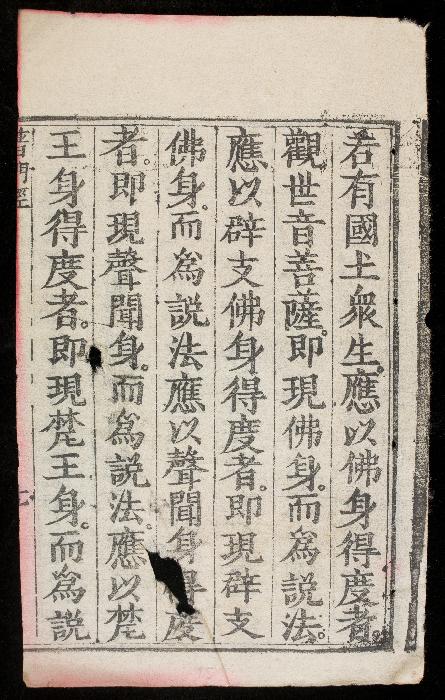 若有國土衆生。應以佛身得度者
觀世音菩薩。即現佛身。而為說法。
應以辟支佛身得度者。即現辟支
佛身。而為說法應以聲聞身得度
者。即現聲聞身。而為說法。應以梵
王身得度者。即現梵王身。而為說
普門經
七